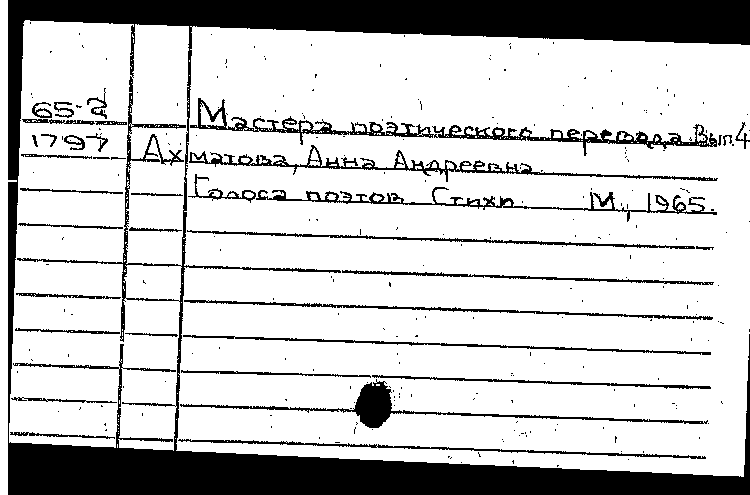 65-2 Мастера поэтического перевода. Вып.4
1797 Ахматова, Анна Андреевна.
Голоса поэтов. Стихи. М., 1965.